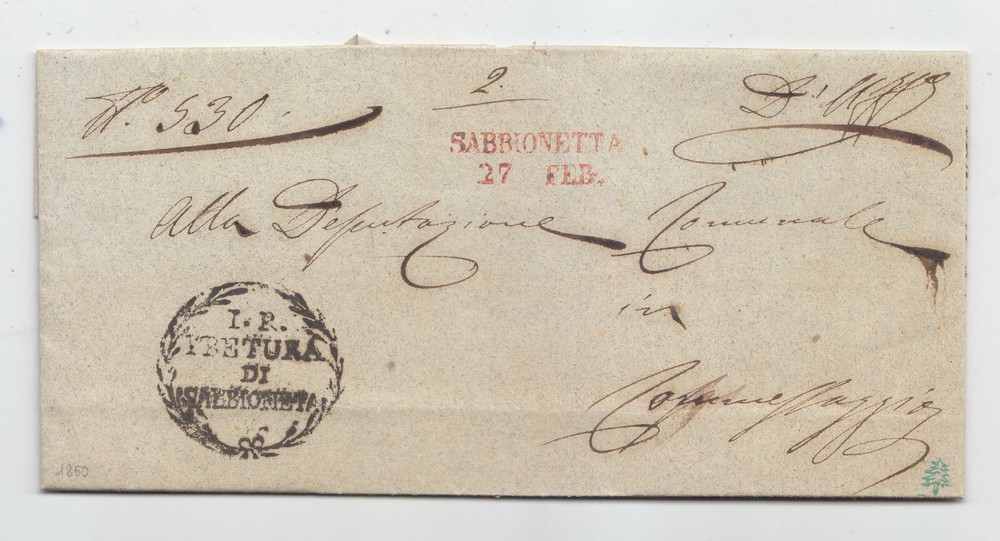 N.º 530.
2.
D'Uff.º
SABBIONETTA
27 FEB.
Alla Deputazione Comunale
in
Commessaggio
I. R.
PRETURA
DI
SABBIONETA
1850